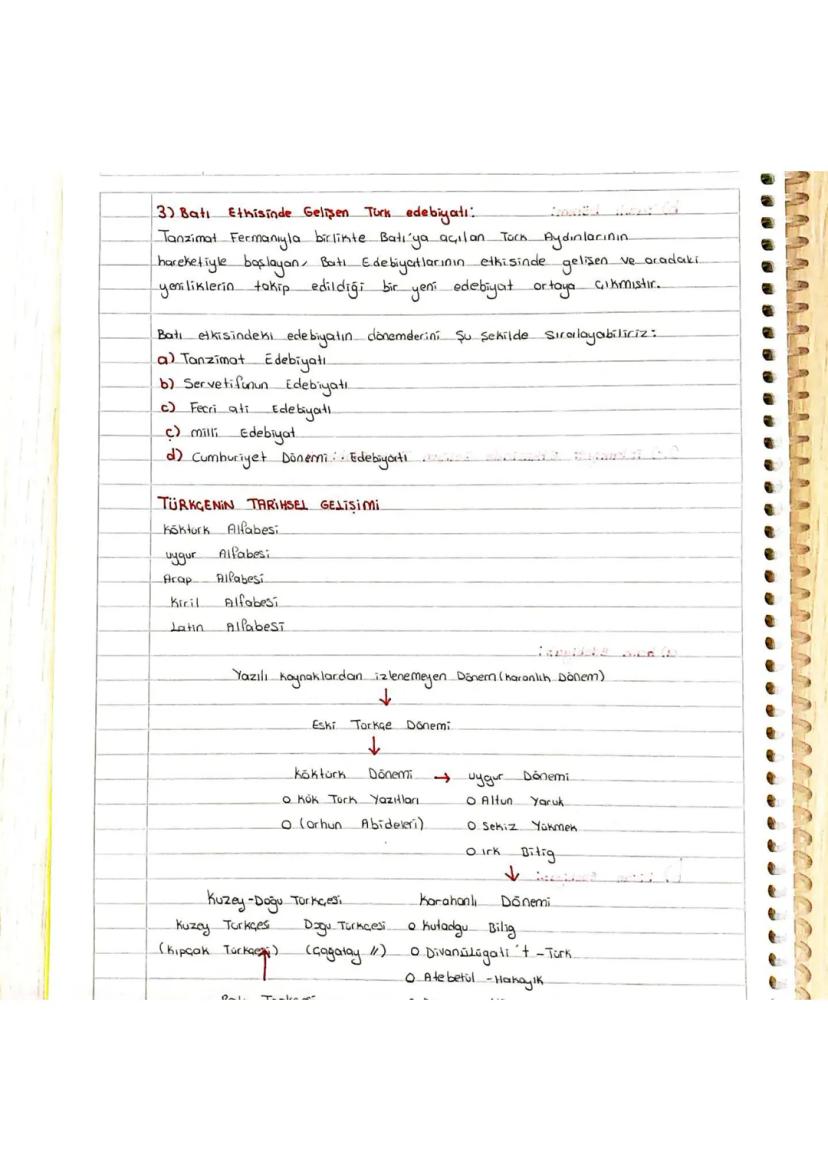 3) Batı Etkisinde Gelişen Türk edebiyatı:
Tanzimat Fermanıyla birlikte Batı'ya açılan Türk Aydınlarının
hareketiyle başlayan, Batı Edebiyatlarının etkisinde gelişen ve oradaki
yeniliklerin takip edildiği bir yeni edebiyat ortaya çıkmıştır.
Batı etkisindeki edebiyatın dönemderini şu şekilde sıralayabiliriz:
a) Tanzimat Edebiyatı
b) Servetifunun Edebiyatı
c) Fecri ati Edebiyatı
ç) milli Edebiyat
d) Cumhuriyet Dönemi Edebiyatı
TÜRKÇENİN TARİHSEL GELİŞİMİ
Köktürk Alfabesi
uygur Alfabesi
Arap Alfabesi
Kiril Alfabesi
Latin Alfabesi
Yazılı kaynaklardan izlenemeyen Dönem (karanlık Dönem)
↓
Eski Türkçe Dönemi
↓
Köktürk Dönemi → uygur Dönemi
o Kök Türk Yazıtları o Altun Yaruk
o (orhun Abideleri) o Sekiz Yükmek
o ırk Bitig
↓
Kuzey-Doğu Türkçesi Karahanlı Dönemi
Kuzey Türkçesi Doğu Türkçesi o Kutadgu Bilig
(Kıpçak Türkçesi) (Çağatay //) o Divanülügati't-Türk
o Atebetül-Hakayık